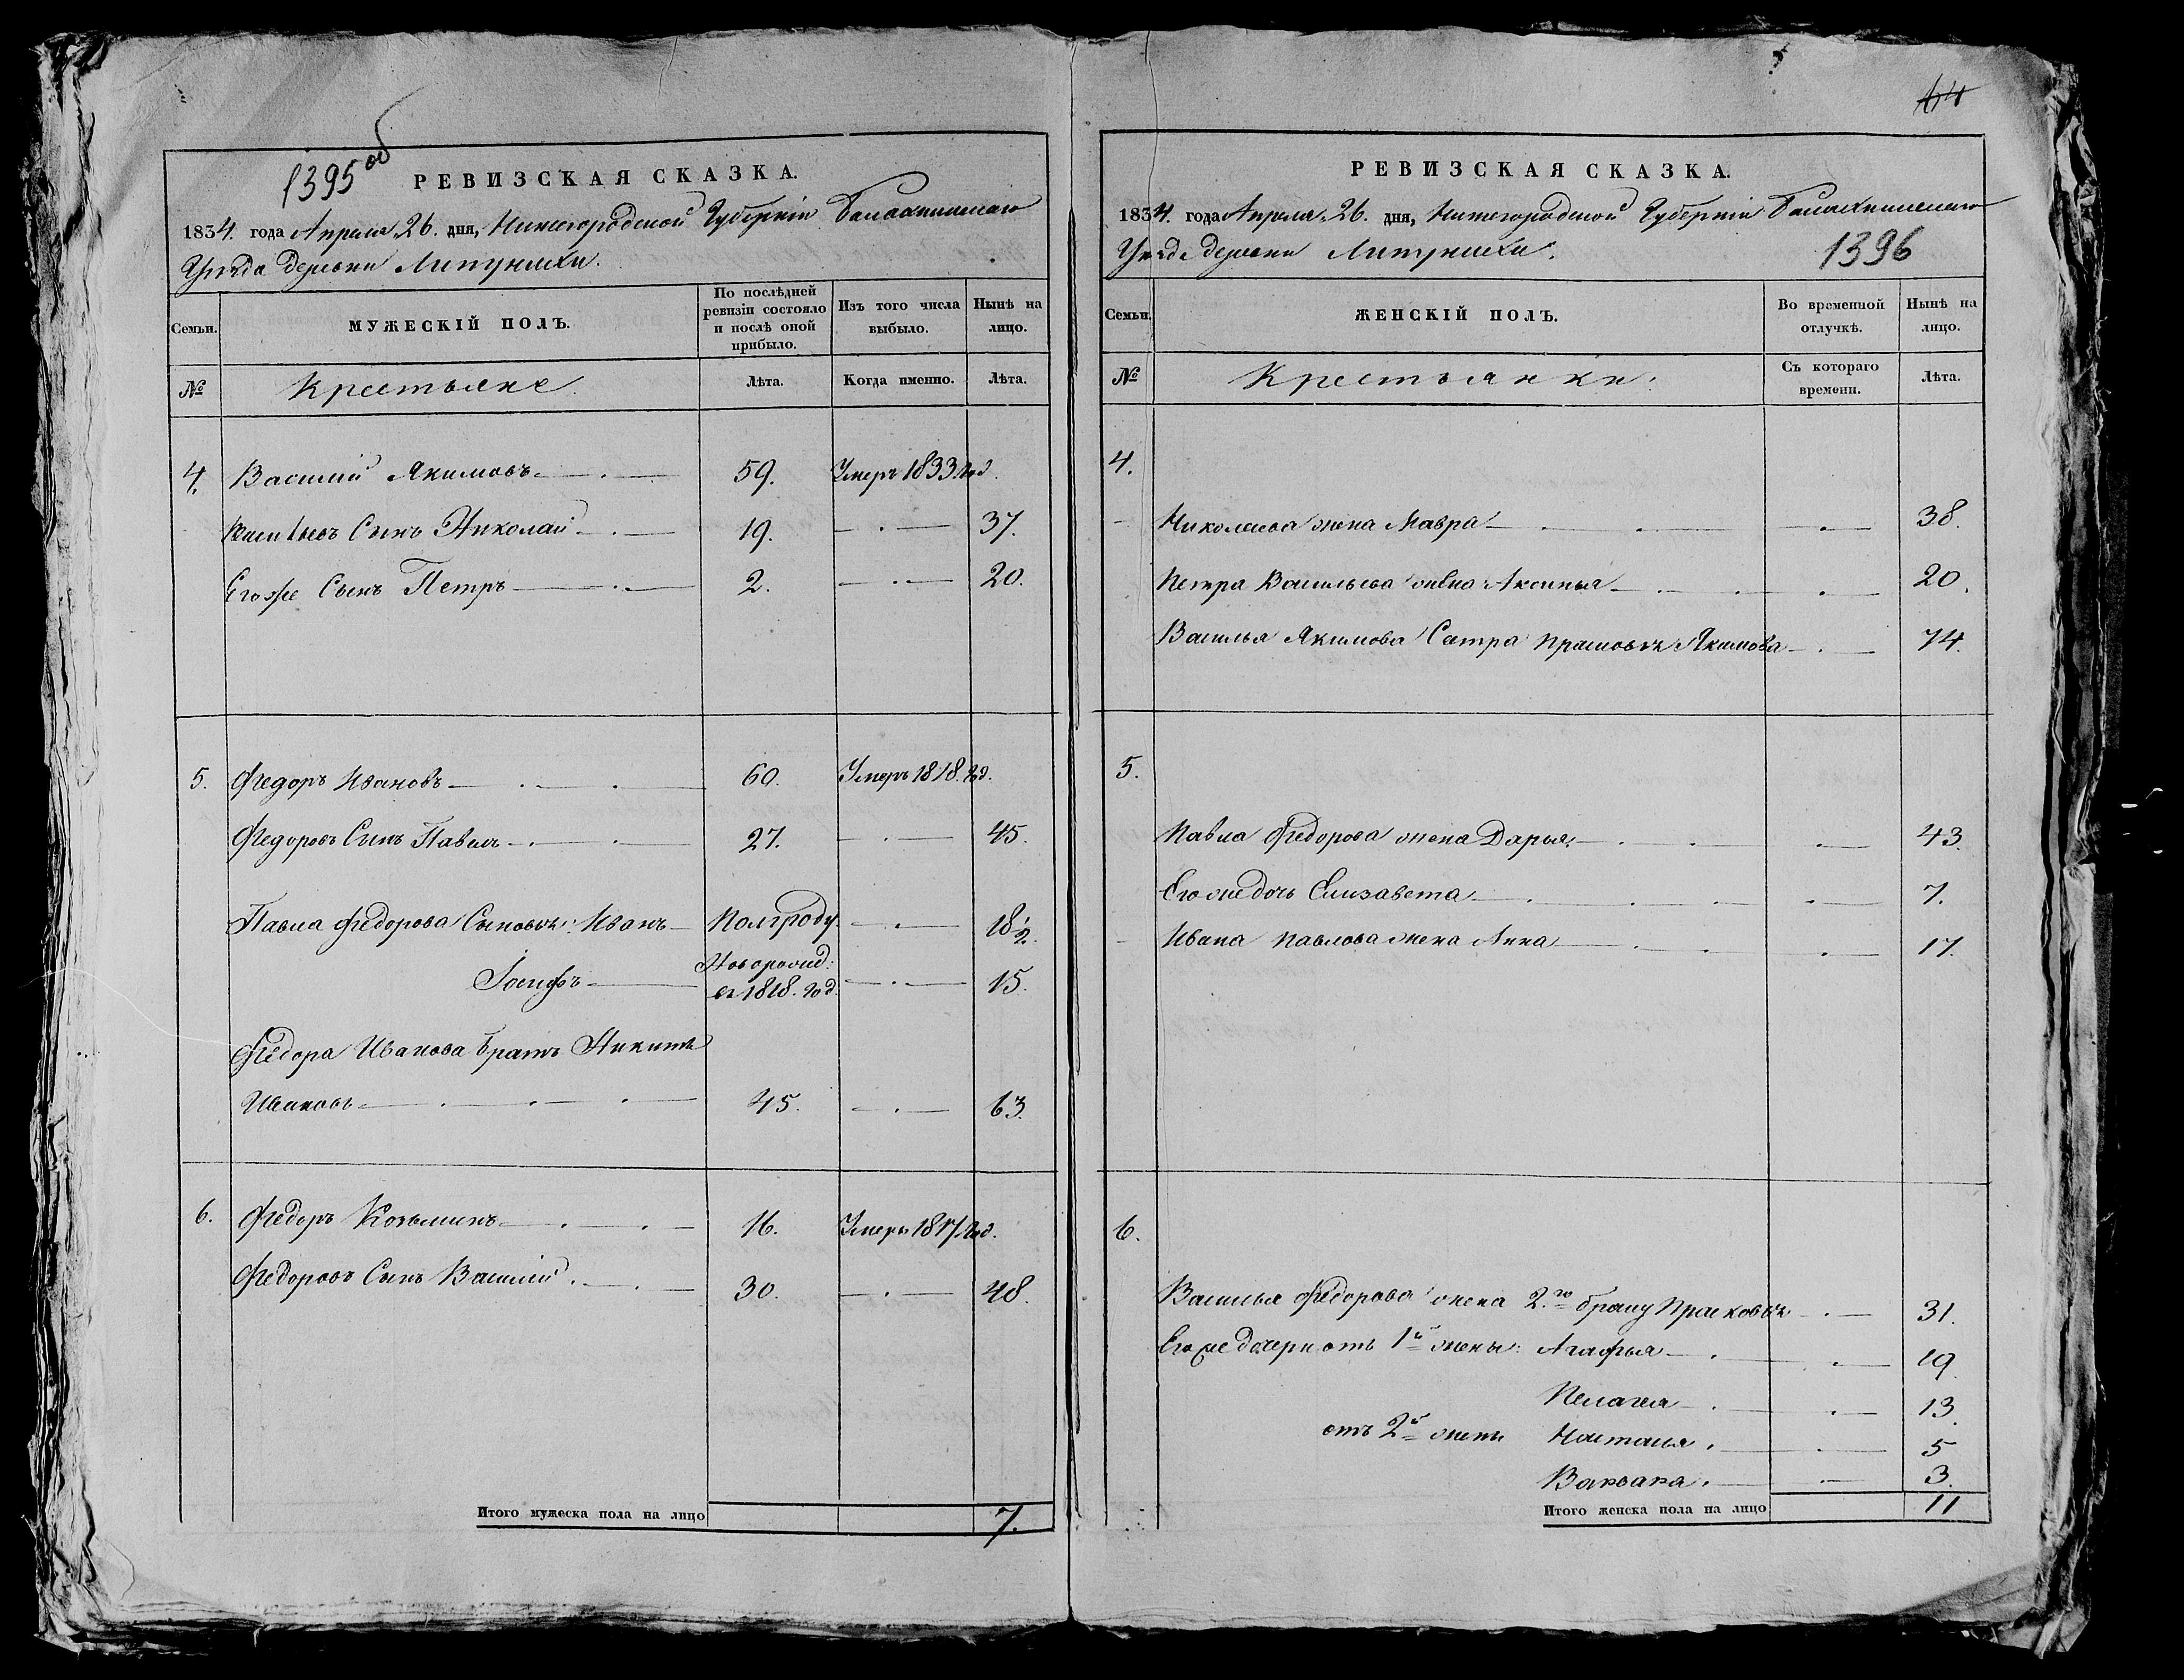 1395 об
РЕВИЗСКАЯ СКАЗКА.
1834. года Апреля 26. дня, Нижегородской Губерніи Балахнинскаго
Уѣзда деревни Липунихи.
Семьи. МУЖЕСКІЙ ПОЛЪ. По послѣдней ревизіи состояло и послѣ оной прибыло. Изъ того числа выбыло. Нынѣ на лицо.
№ Крестьяне. Лѣта. Когда именно. Лѣта.
4. Василий Якимовъ 59. Умеръ 1833. год.
Васильевъ Сынъ Николай 19. 37.
Егоже Сынъ Петръ 2. 20.
5. Федоръ Ивановъ 60. Умеръ 1818. год.
Федоровъ Сынъ Павелъ 27. 45.
Павла Федорова Сыновья: Иванъ Полгоду 18 1/2.
Іосифъ Новорожд: въ 1818. год. 15.
Федора Иванова братъ Никита
Ивановъ 45. 63.
6. Федоръ Козьминъ 16. Умеръ 1817. год.
Федоровъ Сынъ Василій 30. 48.
Итого мужеска пола на лицо 7.
РЕВИЗСКАЯ СКАЗКА.
1834. года Апреля 26. дня, Нижегородской Губерніи Балахнинскаго
Уѣзда деревни Липунихи.
1396
Семьи. ЖЕНСКІЙ ПОЛЪ. Во временной отлучкѣ. Нынѣ на лицо.
№ Крестьянки: Съ котораго времени. Лѣта.
4.
Николаева жена Мавра 38.
Петра Васильева жена Аксинья 20.
Василья Якимова Сестра Прасковья Якимова 74.
5.
Павла Федорова жена Дарья 43.
Его же дочь Елизавета 7.
Ивана Павлова жена Анна 17.
6.
Василья Федорова жена 2.го браку Прасковья 31.
Егоже дочери отъ 1й жены: Агафья 19.
Пелагея 13.
отъ 2й жены Настасья. 5
Варвара. 3.
Итого женска пола на лицо 11